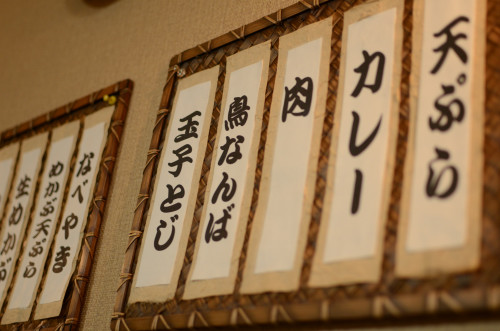 天ぷら
カレー
肉
鳥なんば
玉子とじ
なべやき
めかぶ天ぷら
生めかぶ